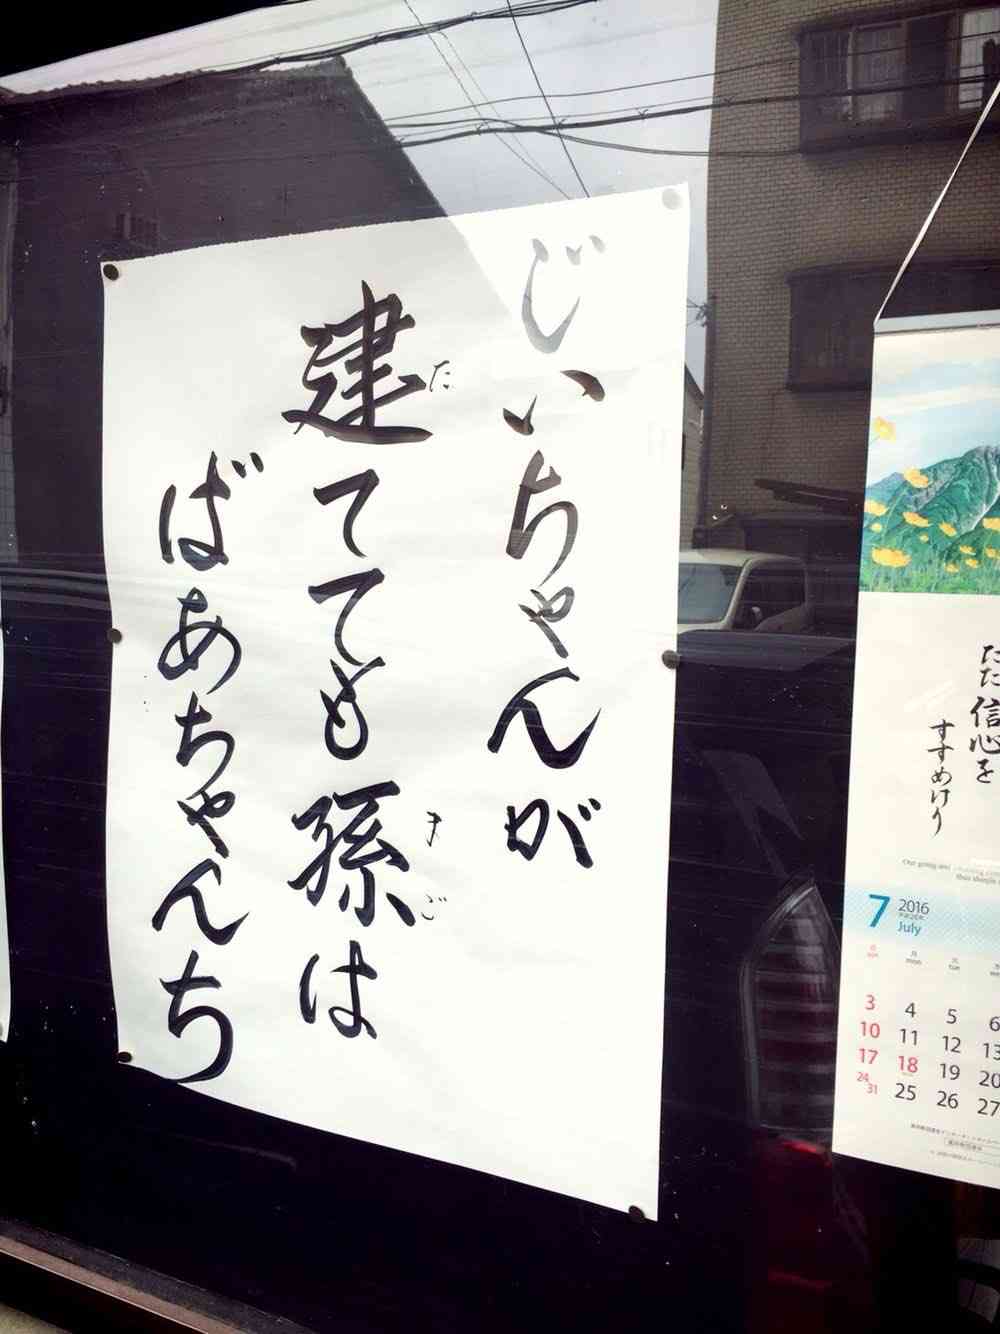 じいちゃんが
建てても孫は
た
まご
ばあちゃんち
信心を
すすめけり
7
2016
July
sun
mon
tue
3 4 5 6
10 11 12 13
17 18 19 20
24 25 26 27
31